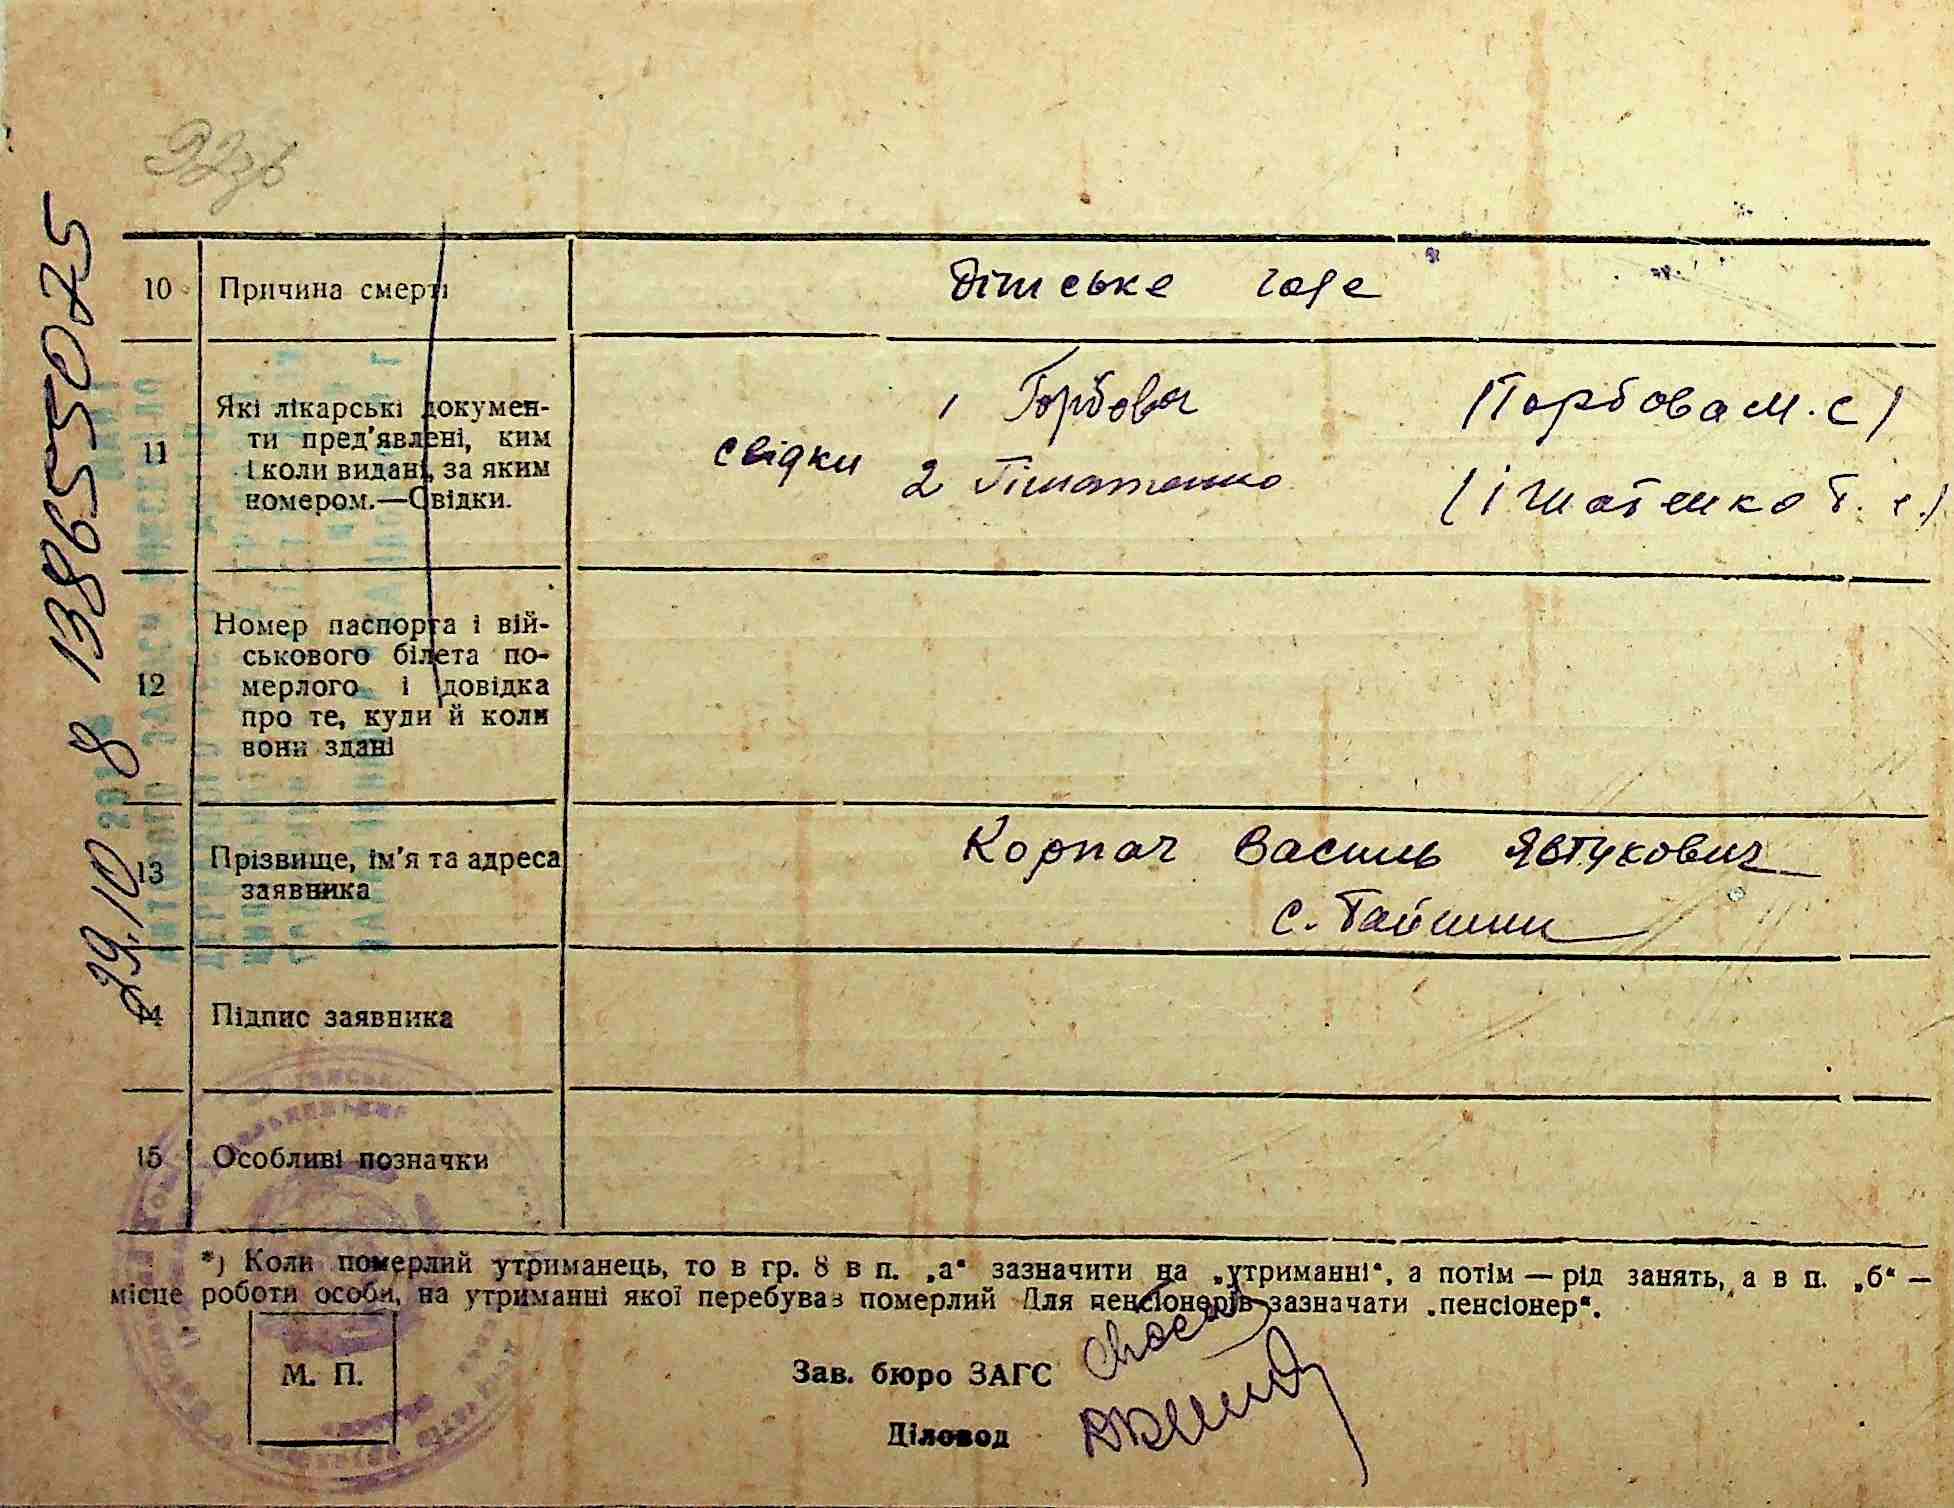 92зв
10 Причина смерті Дітське горе
Які лікарські докумен-
ти пред'явлені, ким
і коли видані, за яким
номером.—Свідки.
11
свідки
1 Горбова (Горбова М. С)
2 Ігнатенко (Ігнатенко Т. Є.)
Номер паспорта і вій-
ськового білета по-
мерлого і довідка
про те, куди й коли
вони здані
12
13 Прізвище, ім'я та адреса
заявника
Корпач Василь Явтукович
с. Гайшин
14 Підпис заявника
15 Особливі позначки
*) Коли померлий утриманець, то в гр. 8 в п. „а“ зазначити на „утриманні“, а потім — рід занять, а в п. „б“ —
місце роботи особи, на утриманні якої перебував померлий Для пенсіонерів зазначати „пенсіонер“.
М. П.
Зав. бюро ЗАГС
Діловод
29.10 8 138655075